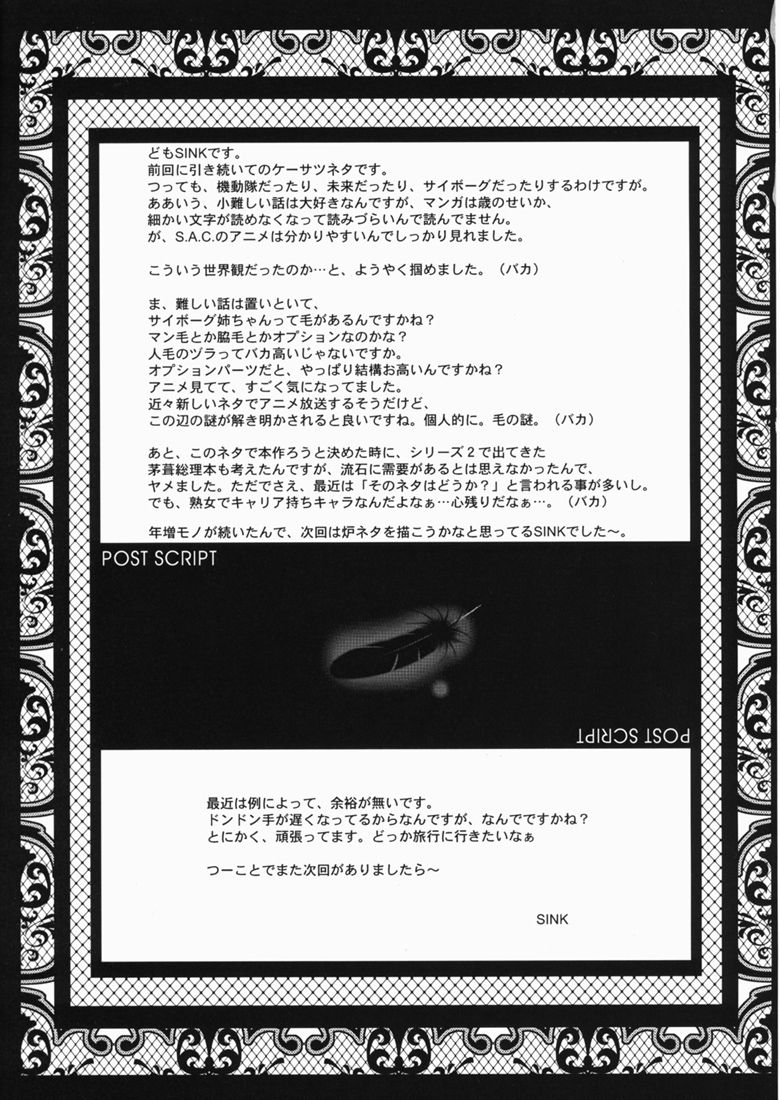 どもSINKです。
前回に引き続いてのケーサツネタです。
つっても、機動隊だったり、未来だったり、サイボーグだったりするわけですが。
ああいう、小難しい話は大好きなんですが、マンガは歳のせいか、
細かい文字が読めなくなって読みづらいんで読んでません。
が、S.A.C.のアニメは分かりやすいんでしっかり見れました。
こういう世界観だったのか…と、ようやく掴めました。（バカ）
ま、難しい話は置いといて、
サイボーグ姉ちゃんって毛があるんですかね？
マン毛とか脇毛とかオプションなのかな？
人毛のヅラってバカ高いじゃないですか。
オプションパーツだと、やっぱり結構お高いんですかね？
アニメ見てて、すごく気になってました。
近々新しいネタでアニメ放送するそうだけど、
この辺の謎が解き明かされると良いですね。個人的に。毛の謎。（バカ）
あと、このネタで本作ろうと決めた時に、シリーズ２で出てきた
茅葺総理本も考えたんですが、流石に需要があるとは思えなかったんで、
ヤメました。ただでさえ、最近は「そのネタはどうか？」と言われる事が多いし。
でも、熟女でキャリア持ちキャラなんだよなぁ…心残りだなぁ…。（バカ）
年増モノが続いたんで、次回は炉ネタを描こうかなと思ってるSINKでした～。
POST SCRIPT
POST SCRIPT
最近は例によって、余裕が無いです。
ドンドン手が遅くなってるからなんですが、なんでですかね？
とにかく、頑張ってます。どっか旅行に行きたいなぁ
つーことでまた次回がありましたら～
SINK